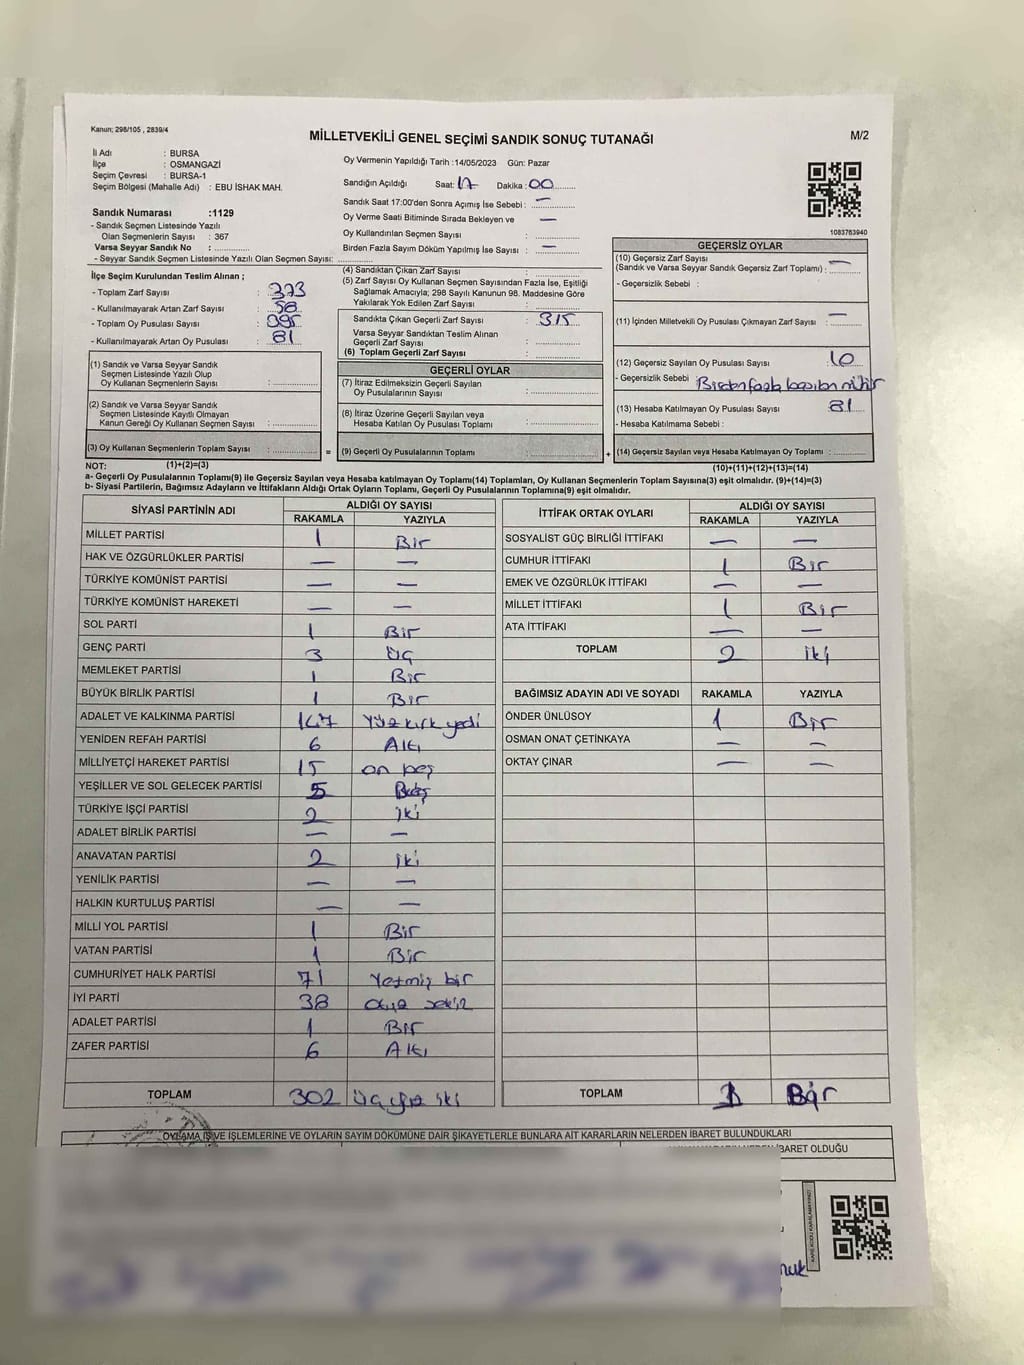 Kanun; 298/105 , 2839/4
MİLLETVEKİLİ GENEL SEÇİMİ SANDIK SONUÇ TUTANAĞI
M/2
İl Adı : BURSA
İlçe : OSMANGAZİ
Seçim Çevresi : BURSA-1
Seçim Bölgesi (Mahalle Adı) : EBU İSHAK MAH.
Sandık Numarası :1129
- Sandık Seçmen Listesinde Yazılı
Olan Seçmenlerin Sayısı : 367
Varsa Seyyar Sandık No :
- Seyyar Sandık Seçmen Listesinde Yazılı Olan Seçmen Sayısı:
Oy Vermenin Yapıldığı Tarih :14/05/2023 Gün: Pazar
Sandığın Açıldığı Saat: 17 Dakika : 00
Sandık Saat 17:00'den Sonra Açılmış İse Sebebi : —
Oy Verme Saati Bitiminde Sırada Bekleyen ve —
Oy Kullandırılan Seçmen Sayısı :
Birden Fazla Sayım Döküm Yapılmış İse Sayısı : —
1083763940
İlçe Seçim Kurulundan Teslim Alınan ;
- Toplam Zarf Sayısı : 373
- Kullanılmayarak Artan Zarf Sayısı : 58
- Toplam Oy Pusulası Sayısı : 395
- Kullanılmayarak Artan Oy Pusulası : 81
(1) Sandık ve Varsa Seyyar Sandık
Seçmen Listesinde Yazılı Olup
Oy Kullanan Seçmenlerin Sayısı :
(2) Sandık ve Varsa Seyyar Sandık
Seçmen Listesinde Kayıtlı Olmayan
Kanun Gereği Oy Kullanan Seçmen Sayısı :
(3) Oy Kullanan Seçmenlerin Toplam Sayısı :
(4) Sandıktan Çıkan Zarf Sayısı :
(5) Zarf Sayısı Oy Kullanan Seçmen Sayısından Fazla İse, Eşitliği
Sağlamak Amacıyla; 298 Sayılı Kanunun 98. Maddesine Göre
Yakılarak Yok Edilen Zarf Sayısı :
Sandıkta Çıkan Geçerli Zarf Sayısı : 315
Varsa Seyyar Sandıktan Teslim Alınan
Geçerli Zarf Sayısı :
(6) Toplam Geçerli Zarf Sayısı :
GEÇERLİ OYLAR
(7) İtiraz Edilmeksizin Geçerli Sayılan
Oy Pusulalarının Sayısı :
(8) İtiraz Üzerine Geçerli Sayılan veya
Hesaba Katılan Oy Pusulası Toplamı :
= (9) Geçerli Oy Pusulalarının Toplamı :
GEÇERSİZ OYLAR
(10) Geçersiz Zarf Sayısı —
(Sandık ve Varsa Seyyar Sandık Geçersiz Zarf Toplamı) :
- Geçersizlik Sebebi :
(11) İçinden Milletvekili Oy Pusulası Çıkmayan Zarf Sayısı : —
(12) Geçersiz Sayılan Oy Pusulası Sayısı : 10
- Geçersizlik Sebebi : Birden fazla basılan mühür
(13) Hesaba Katılmayan Oy Pusulası Sayısı 81
- Hesaba Katılmama Sebebi :
+ (14) Geçersiz Sayılan veya Hesaba Katılmayan Oy Toplamı :
NOT: (1)+(2)=(3) (10)+(11)+(12)+(13)=(14)
a- Geçerli Oy Pusulalarının Toplamı(9) ile Geçersiz Sayılan veya Hesaba katılmayan Oy Toplamı(14) Toplamları, Oy Kullanan Seçmenlerin Toplam Sayısına(3) eşit olmalıdır. (9)+(14)=(3)
b- Siyasi Partilerin, Bağımsız Adayların ve İttifakların Aldığı Ortak Oyların Toplamı, Geçerli Oy Pusulalarının Toplamına(9) eşit olmalıdır.
SİYASİ PARTİNİN ADI ALDIĞI OY SAYISI
RAKAMLA YAZIYLA
MİLLET PARTİSİ 1 Bir
HAK VE ÖZGÜRLÜKLER PARTİSİ — —
TÜRKİYE KOMÜNİST PARTİSİ — —
TÜRKİYE KOMÜNİST HAREKETİ — —
SOL PARTİ 1 Bir
GENÇ PARTİ 3 Üç
MEMLEKET PARTİSİ 1 Bir
BÜYÜK BİRLİK PARTİSİ 1 Bir
ADALET VE KALKINMA PARTİSİ 147 Yüz kırk yedi
YENİDEN REFAH PARTİSİ 6 Altı
MİLLİYETÇİ HAREKET PARTİSİ 15 on beş
YEŞİLLER VE SOL GELECEK PARTİSİ 5 Beş
TÜRKİYE İŞÇİ PARTİSİ 2 iki
ADALET BİRLİK PARTİSİ — —
ANAVATAN PARTİSİ 2 iki
YENİLİK PARTİSİ — —
HALKIN KURTULUŞ PARTİSİ — —
MİLLİ YOL PARTİSİ 1 Bir
VATAN PARTİSİ 1 Bir
CUMHURİYET HALK PARTİSİ 71 Yetmiş bir
İYİ PARTİ 38 otuz sekiz
ADALET PARTİSİ 1 Bir
ZAFER PARTİSİ 6 Altı
TOPLAM 302 üç yüz iki
İTTİFAK ORTAK OYLARI ALDIĞI OY SAYISI
RAKAMLA YAZIYLA
SOSYALİST GÜÇ BİRLİĞİ İTTİFAKI — —
CUMHUR İTTİFAKI 1 Bir
EMEK VE ÖZGÜRLÜK İTTİFAKI — —
MİLLET İTTİFAKI 1 Bir
ATA İTTİFAKI — —
TOPLAM 2 iki
BAĞIMSIZ ADAYIN ADI VE SOYADI RAKAMLA YAZIYLA
ÖNDER ÜNLÜSOY 1 Bir
OSMAN ONAT ÇETİNKAYA — —
OKTAY ÇINAR — —
TOPLAM 1 Bir
OYLAMA İŞ VE İŞLEMLERİNE VE OYLARIN SAYIM DÖKÜMÜNE DAİR ŞİKAYETLERLE BUNLARA AİT KARARLARIN NELERDEN İBARET BULUNDUKLARI
İBARET OLDUĞU